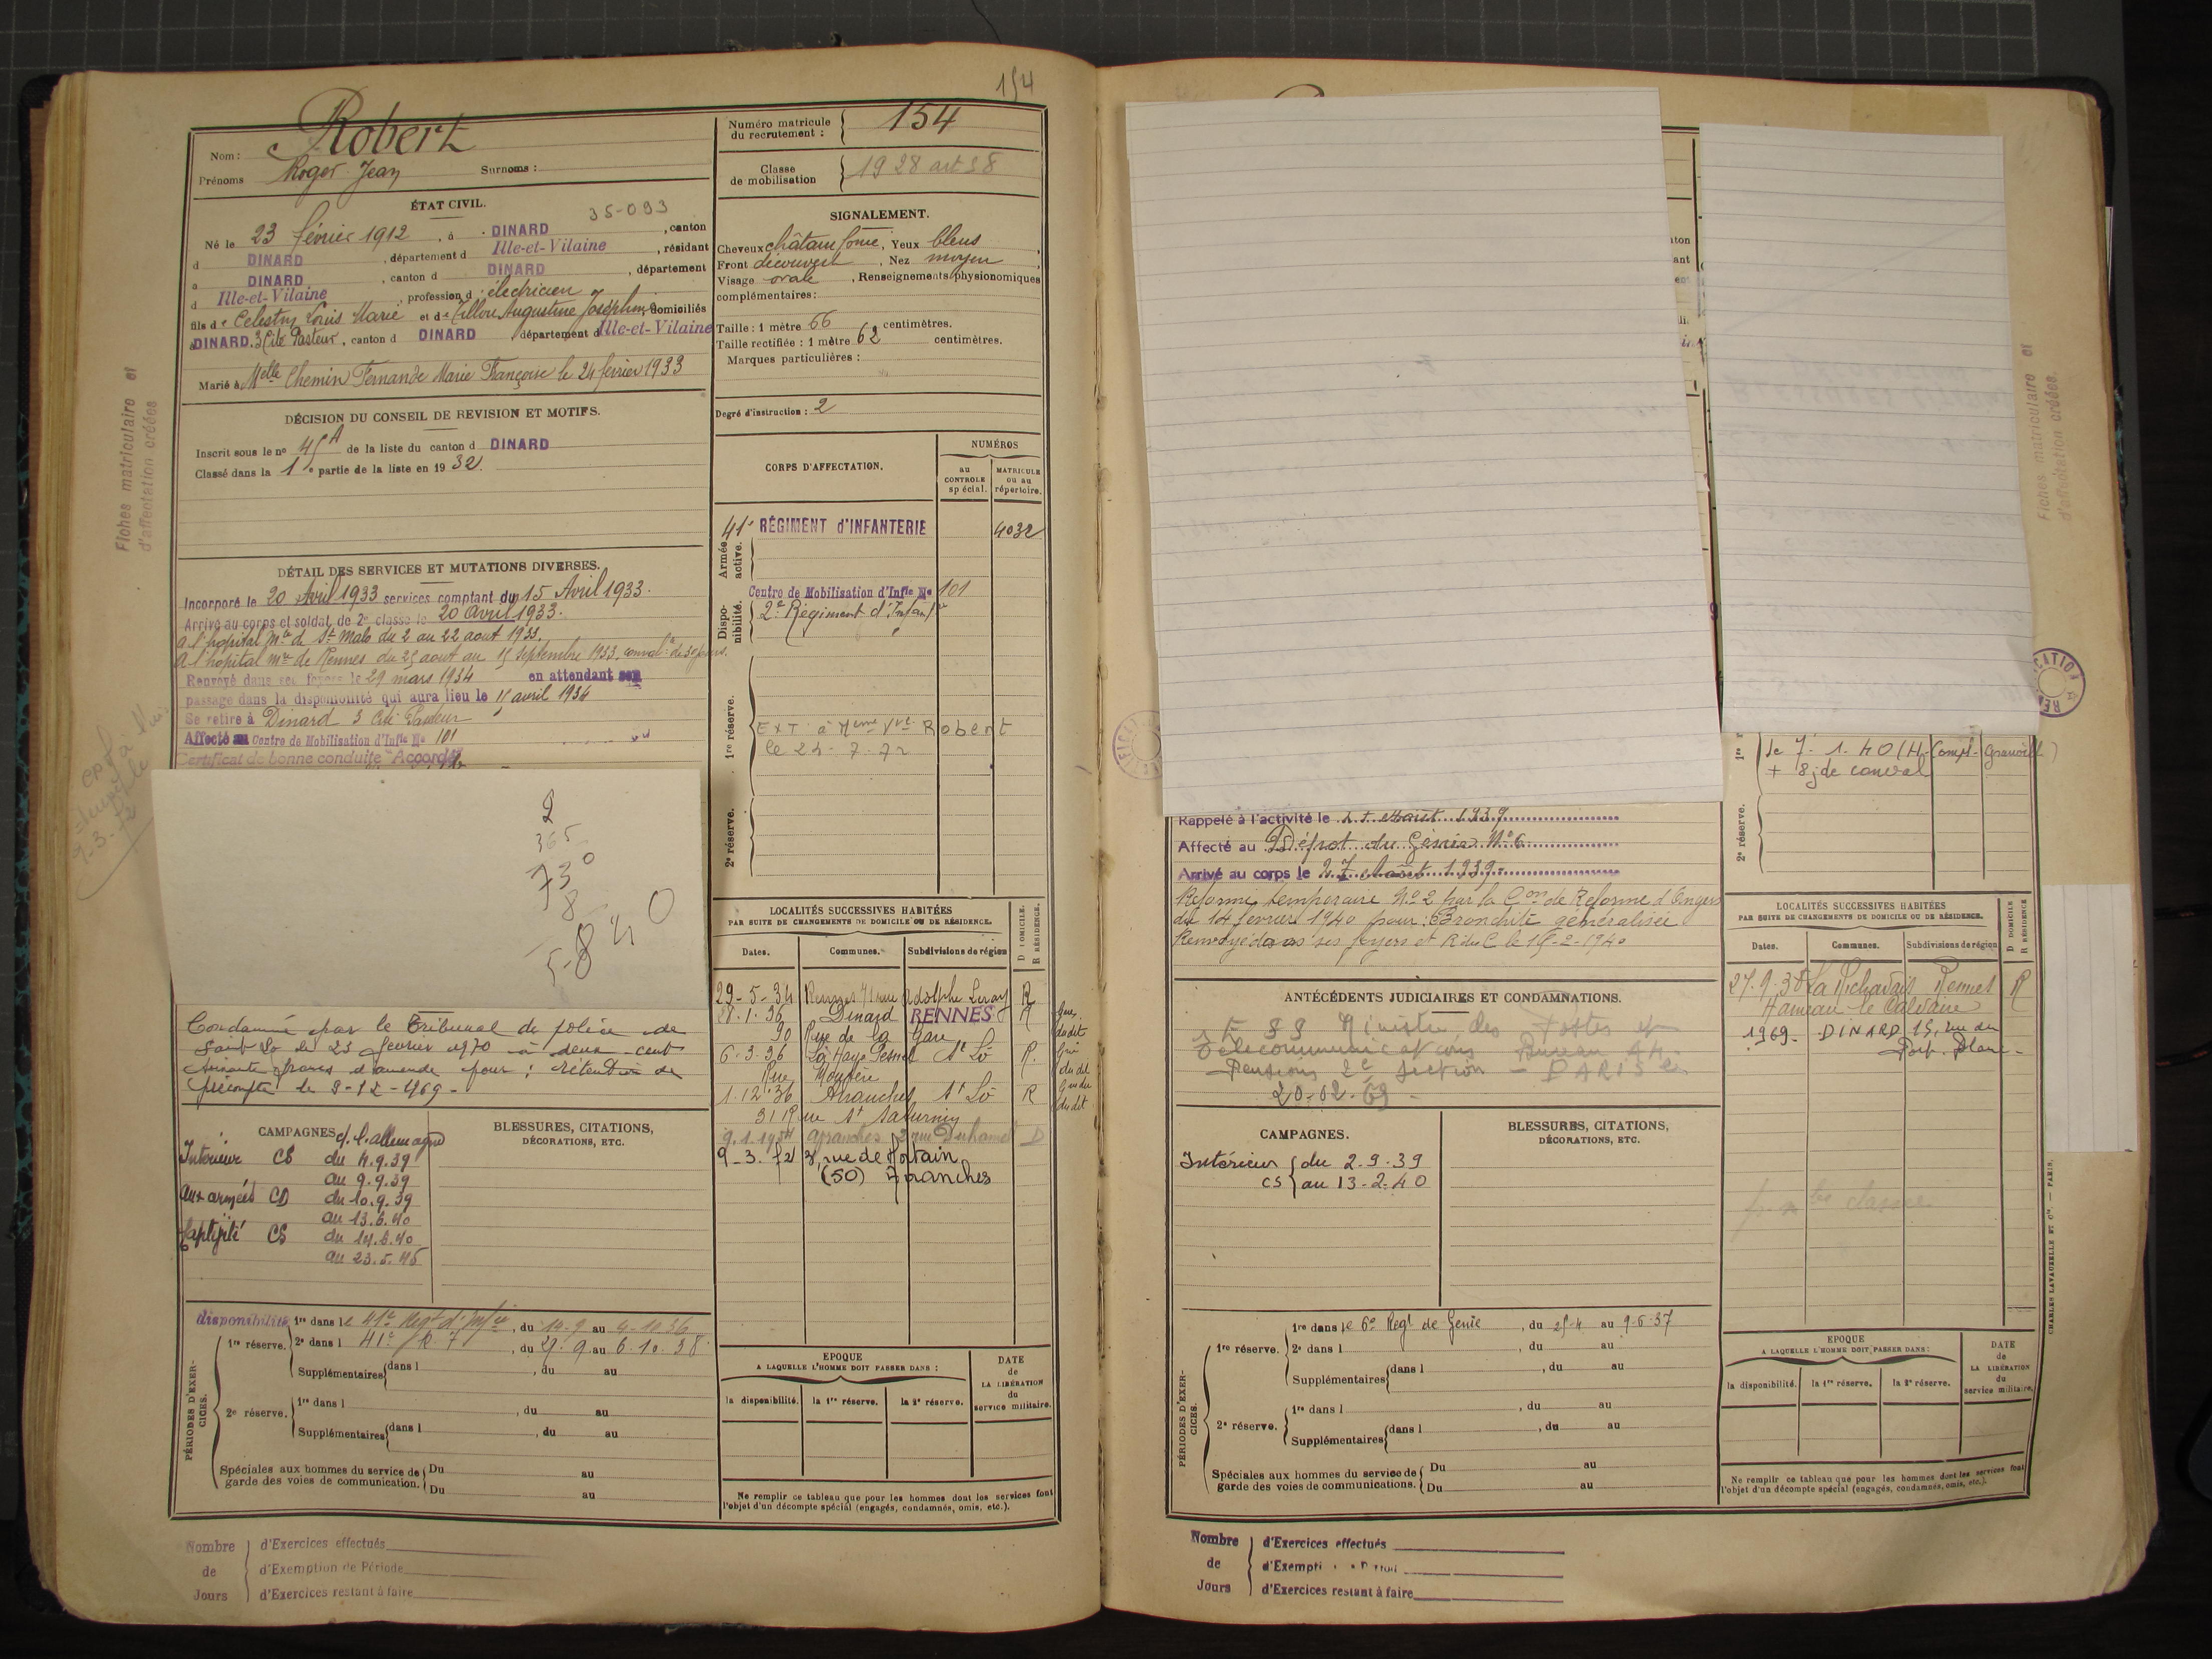 154
Nom : Robert
Prénoms Roger Jean Surnoms :
Numéro matricule du recrutement : 154
Classe de mobilisation 1928 art 58
ÉTAT CIVIL.
35-093
Né le 23 février 1912, à DINARD, canton
d DINARD, département d Ille-et-Vilaine, résidant
à DINARD, canton d DINARD, département
d Ille-et-Vilaine, profession d électricien
fils de Celestin Louis Marie et de Tillon Augustine Joséphine domiciliés
à DINARD. 3 Cité Pasteur, canton d DINARD, département d Ille-et-Vilaine
Marié à Melle Chemin Fernande Marie Françoise le 24 février 1933
SIGNALEMENT.
Cheveux châtain foncé, Yeux bleus,
Front découvert, Nez moyen,
Visage ovale, Renseignements physionomiques
complémentaires :
Taille : 1 mètre 66 centimètres.
Taille rectifiée : 1 mètre 62 centimètres.
Marques particulières :
Degré d'instruction : 2
DÉCISION DU CONSEIL DE REVISION ET MOTIFS.
Inscrit sous le no 45 A de la liste du canton d DINARD
Classé dans la 1e partie de la liste en 1932.
CORPS D'AFFECTATION.
NUMÉROS
au CONTROLE spécial.
MATRICULE ou au répertoire.
Armée active.
41e RÉGIMENT d'INFANTERIE 4032
Disponibilité.
Centre de Mobilisation d'Infie No 101
2e Régiment d'Infantie
1re réserve.
EXT à Mme Vve Robert
le 24-7-72
2e réserve.
DÉTAIL DES SERVICES ET MUTATIONS DIVERSES.
Incorporé le 20 Avril 1933 services comptant du 15 Avril 1933.
Arrivé au corps et soldat de 2e classe le 20 Avril 1933.
A l'hopital Mre de St Malo du 2 au 22 aout 1933.
A l'hopital mre de Rennes du 25 aout au 15 Septembre 1933. conval. de 30 jours.
Renvoyé dans ses foyers le 29 mars 1934 en attendant son
passage dans la disponibilité qui aura lieu le 15 avril 1934
Se retire à Dinard 3 Cité Pasteur
Affecté au Centre de Mobilisation d'Infie No 101
Certificat de bonne conduite "Accordé"
2
365
730
8
5840
Condamné par le Tribunal de police de
Saint Lô le 23 février 1970 à deux cent
francs d'amende pour : rétention de
précompte le 9-12-1969 -
CAMPAGNES c/ l'allemagne
Intérieur CS du 4.9.39
au 9.9.39
Aux armées CD du 10.9.39
au 13.6.40
Captivité CS du 14.6.40
au 23.5.45
BLESSURES, CITATIONS,
DÉCORATIONS, ETC.
LOCALITÉS SUCCESSIVES HABITÉES
PAR SUITE DE CHANGEMENTS DE DOMICILE OU DE RÉSIDENCE.
Dates. Communes. Subdivisions de région
D DOMICILE. R RÉSIDENCE.
29-5-34 Rennes 71 rue Adolphe Leray R
28.1.36 Dinard RENNES R
90 Rue de la Gare
6-3-36 La Haye Pesnel St Lô R.
1.12.36 Avranches St Lô R
31 Rue St Saturnin
9.1.1954 Avranches 2 rue Duhamel D
9-3-72 8, rue de Mortain
(50) Avranches
PÉRIODES D'EXERCICES.
disponibilité 1re dans le 41e Régt d'Infie, du 14-9 au 4-10 36
1re réserve. 2e dans l 41e, du 29.9 au 6.10.38
Supplémentaires dans l, du au
2e réserve. 1re dans l, du au
Supplémentaires dans l, du au
Spéciales aux hommes du service de garde des voies de communication. Du au
Du au
EPOQUE
A LAQUELLE L'HOMME DOIT PASSER DANS :
la disponibilité. la 1re réserve. la 2e réserve.
DATE de LA LIBÉRATION du service militaire.
Ne remplir ce tableau que pour les hommes dont les services font
l'objet d'un décompte spécial (engagés, condamnés, omis, etc.).
Nombre de Jours
d'Exercices effectués
d'Exemption de Période
d'Exercices restant à faire
Fiches matriculaire et
d'affectation créées
9-3-72
Fiches matriculaire et
d'affectation créées.
Rappelé à l'activité le Août 1939
Affecté au Dépôt du Génie No 6
Arrivé au corps le 27 Août 1939
Réformé temporaire No 2 par la Con de Réforme d'Angers
du 14 février 1940 pour : Bronchite généralisée
Renvoyé dans ses foyers et R du C le 15-2-1940
1re
le 7.1.40 (H. Compl. Granville)
+ 8j de conval
2e réserve.
ANTÉCÉDENTS JUDICIAIRES ET CONDAMNATIONS.
Ministre des Postes et
Télécommunications - Bureau
Pensions 2e section - PARIS
20-02-69 -
CAMPAGNES.
Intérieur du 2-9-39
CS au 13-2-40
BLESSURES, CITATIONS,
DÉCORATIONS, ETC.
LOCALITÉS SUCCESSIVES HABITÉES
PAR SUITE DE CHANGEMENTS DE DOMICILE OU DE RÉSIDENCE.
Dates. Communes. Subdivisions de région
D DOMICILE R RÉSIDENCE
27.9.38 La Richardais Rennes R
Hameau le Calvaire
1969 - DINARD 15, rue du
Port. Blanc -
PÉRIODES D'EXERCICES.
1re réserve. 1re dans le 6e Regt de Génie, du 25-4 au 9-5-37
2e dans l, du au
Supplémentaires dans l, du au
2e réserve. 1re dans l, du au
Supplémentaires dans l, du au
Spéciales aux hommes du service de garde des voies de communications. Du au
Du au
EPOQUE
A LAQUELLE L'HOMME DOIT PASSER DANS :
la disponibilité. la 1re réserve. la 2e réserve.
DATE de LA LIBÉRATION du service militaire.
Ne remplir ce tableau que pour les hommes dont les services font
l'objet d'un décompte spécial (engagés, condamnés, omis, etc.).
CHARLES LAVAUZELLE ET Cie. — PARIS.
Nombre de Jours
d'Exercices effectués
d'Exempti
d'Exercices restant à faire